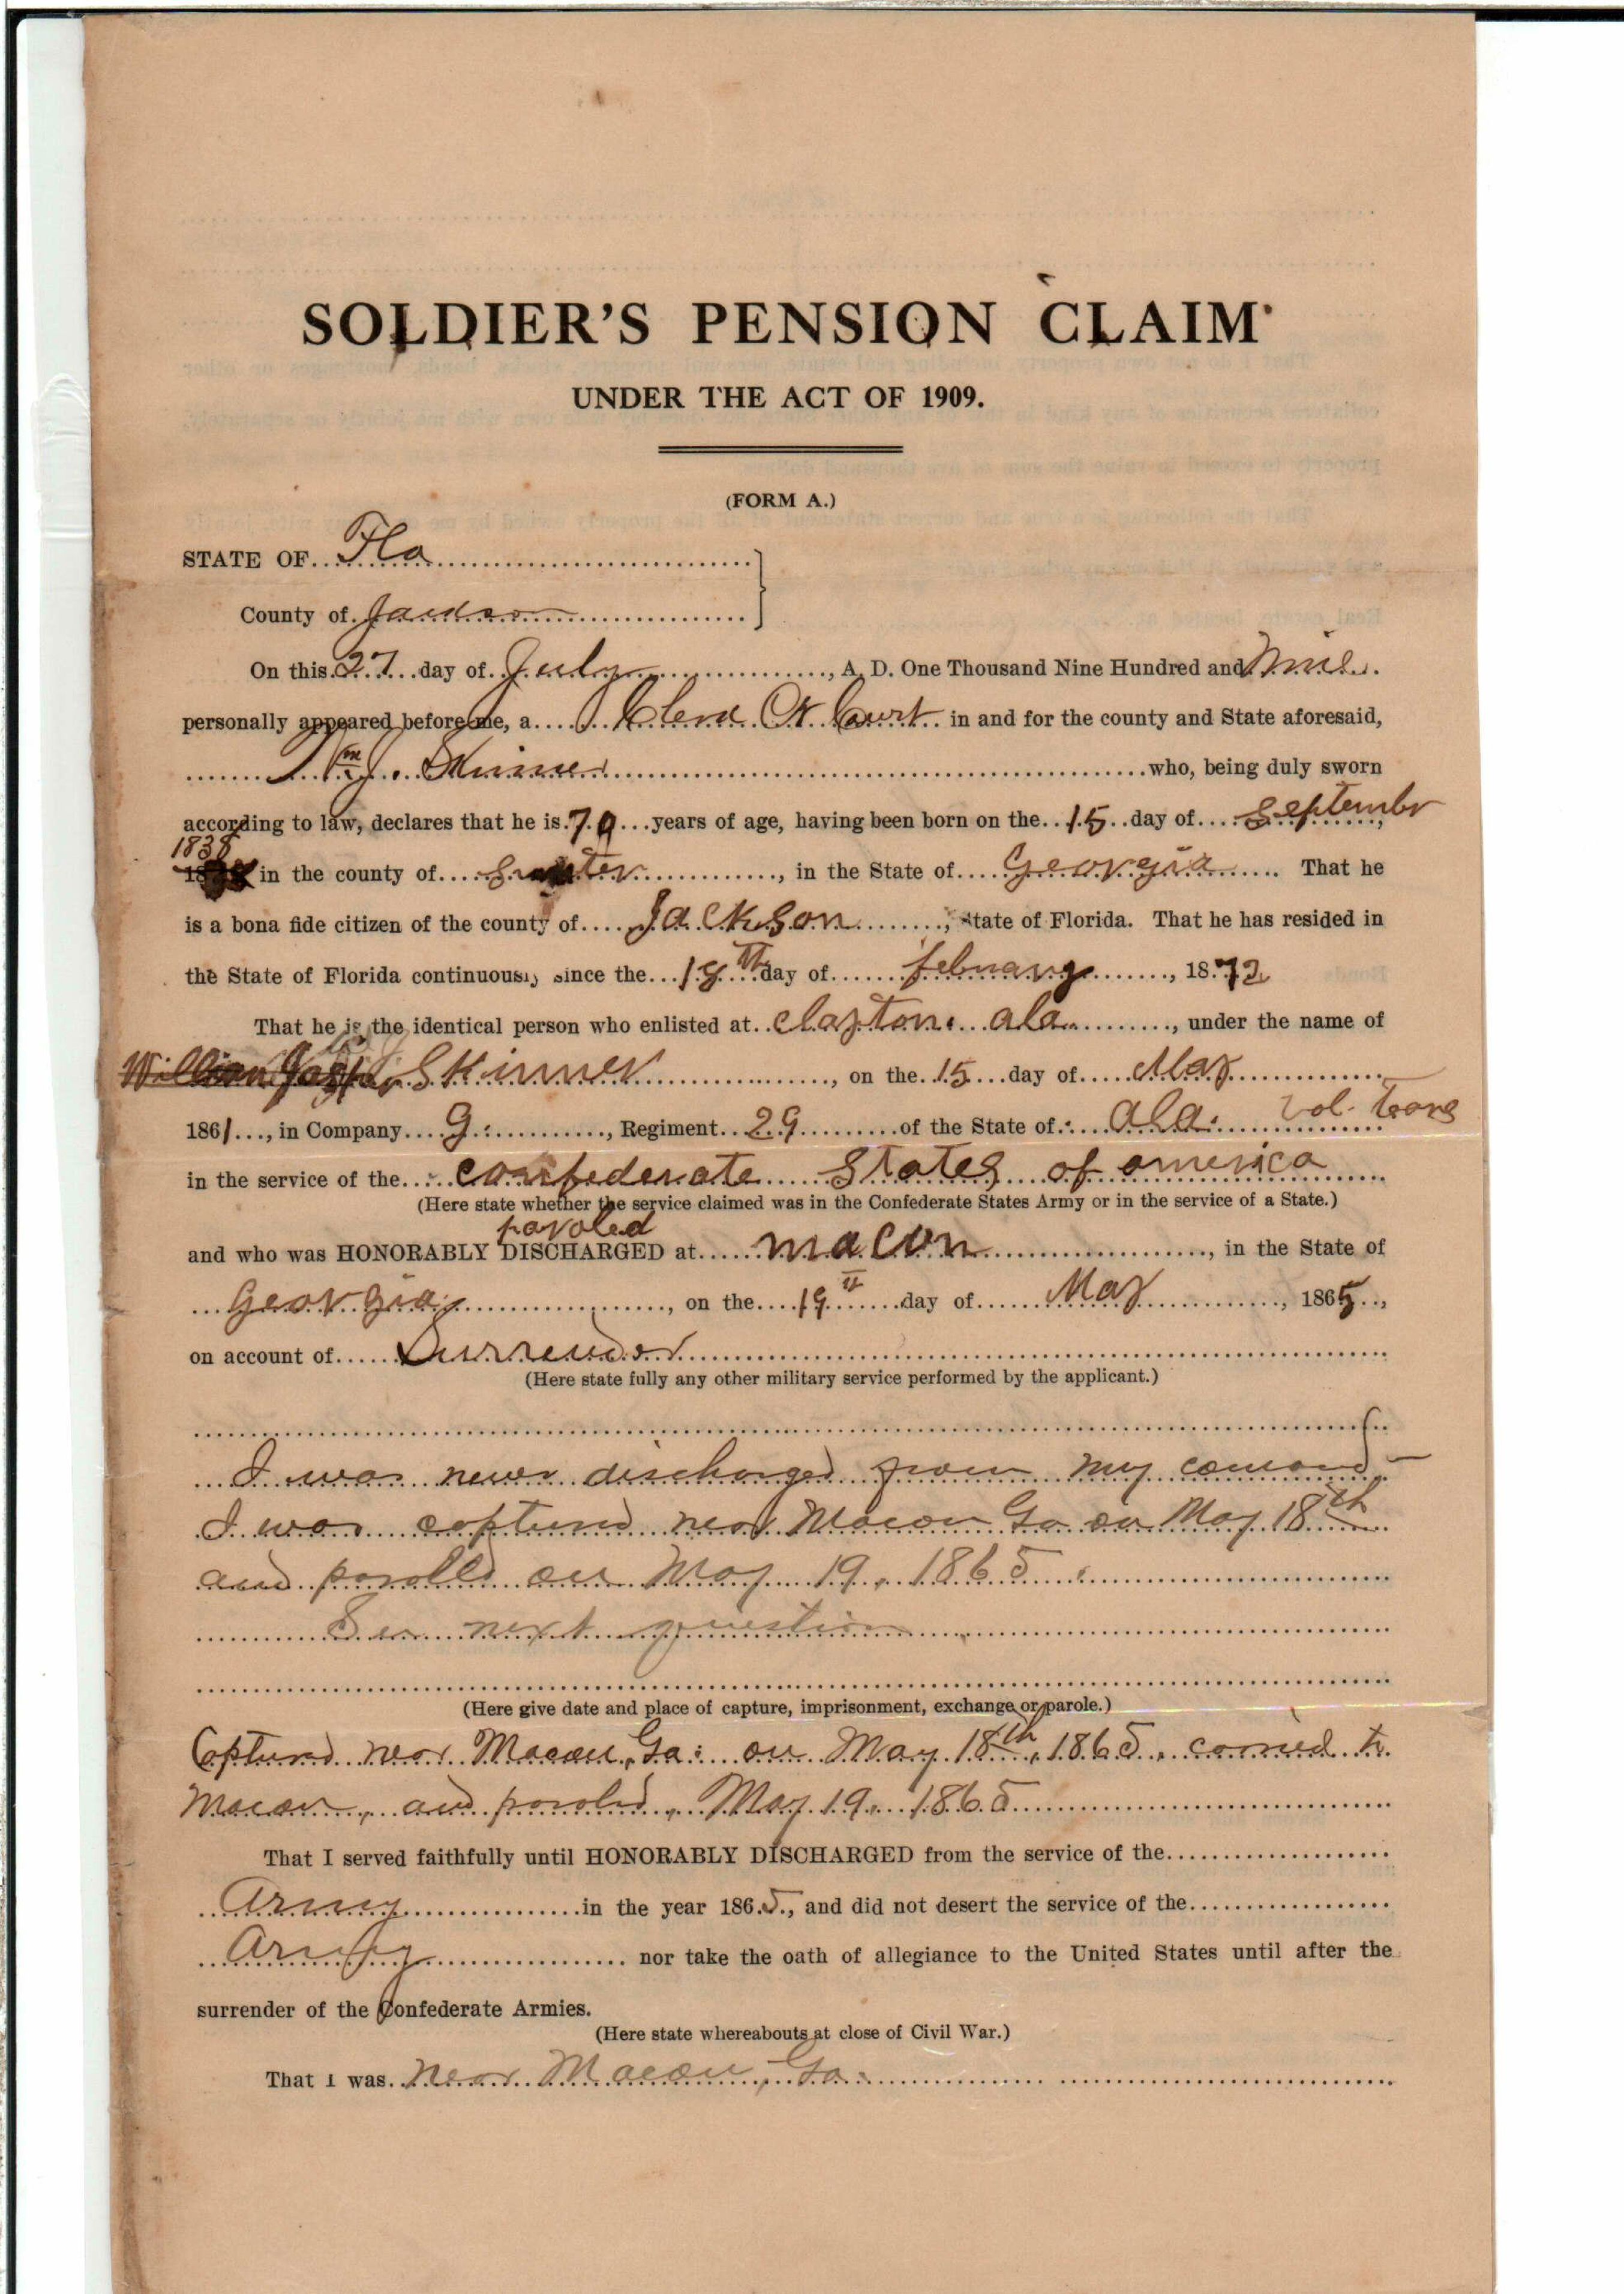 SOLDIER'S PENSION CLAIM
UNDER THE ACT OF 1909.
(FORM A.)
STATE OF Fla
County of Jackson
On this 27 day of July, A. D. One Thousand Nine Hundred and Nine
personally appeared before me, a Clerk Ct Court in and for the county and State aforesaid,
Wm J. Skinner who, being duly sworn
according to law, declares that he is 70 years of age, having been born on the 15 day of September,
1838
in the county of Sumter, in the State of Georgia. That he
is a bona fide citizen of the county of Jackson, State of Florida. That he has resided in
the State of Florida continuously since the 18th day of february, 1872
That he is the identical person who enlisted at Clayton. ala., under the name of
William Skinner, on the 15 day of May
1861, in Company G., Regiment 29 of the State of ala. vol.
in the service of the confederate States of america
(Here state whether the service claimed was in the Confederate States Army or in the service of a State.)
paroled
and who was HONORABLY DISCHARGED at macon, in the State of
Georgia, on the 19th day of May, 1865,
on account of Surrender
(Here state fully any other military service performed by the applicant.)
I was never discharged from my comand
I was captured near Macon Ga on May 18th
and parolled on May 19, 1865.
See next question
(Here give date and place of capture, imprisonment, exchange or parole.)
Captured near Macon, Ga: on May 18th, 1865, carried to
Macon, and paroled, May 19, 1865
That I served faithfully until HONORABLY DISCHARGED from the service of the
Army in the year 1865, and did not desert the service of the
Army nor take the oath of allegiance to the United States until after the
surrender of the Confederate Armies.
(Here state whereabouts at close of Civil War.)
That I was near Macon, Ga.